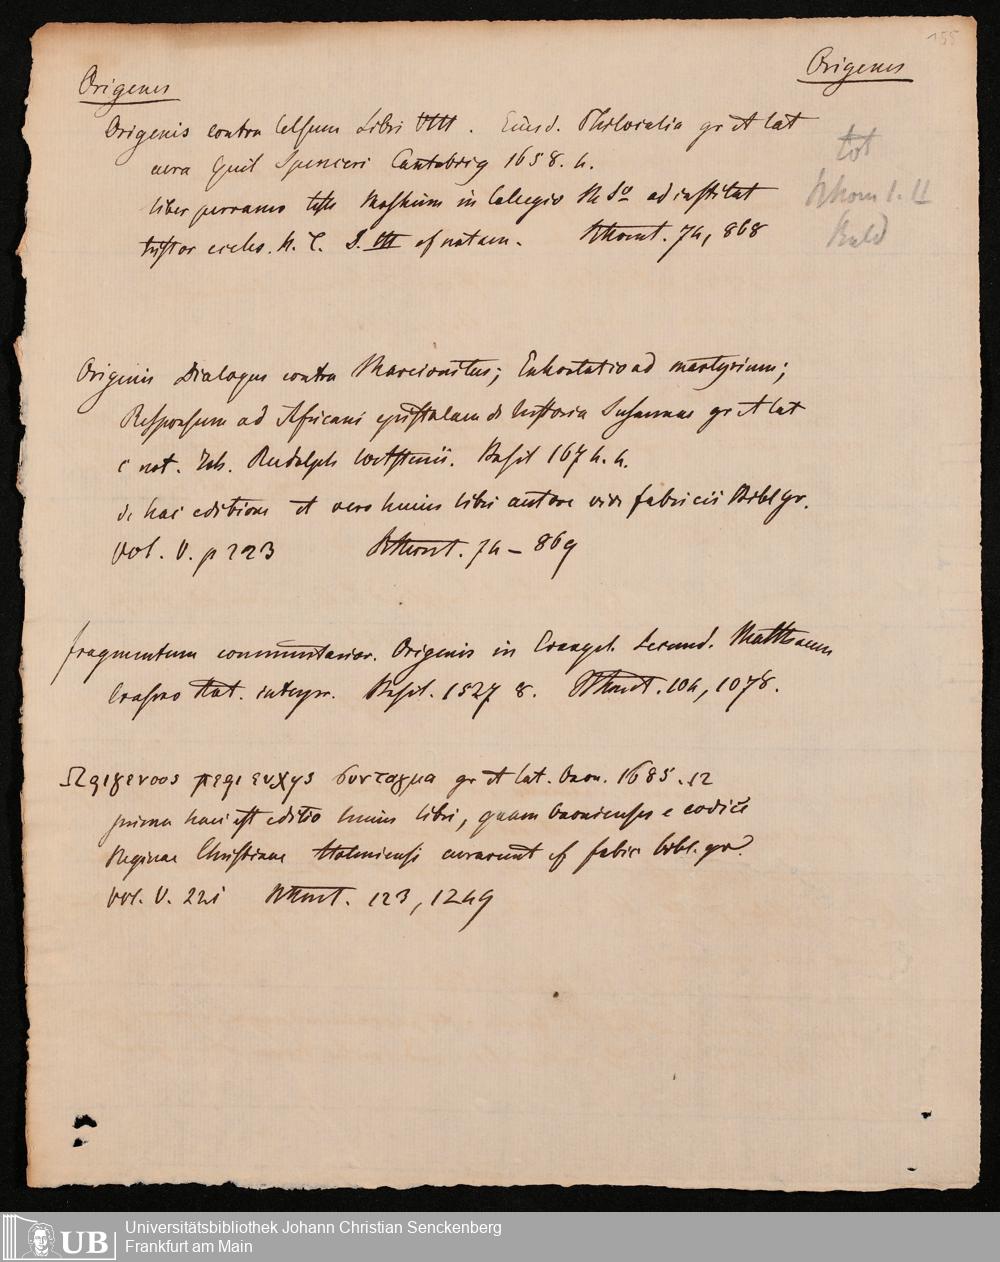 155
Origenes
Origenes
Origenis contra Celsum Libri VIII. Eiusd. Philocalia gr et lat
cura Guil Spenceri Cantabrig 1658. 4.
liber perrarus teste Moshem in ad institut
histor eccles. N. T. S. III. 868
tot
I. II
Origenis Dialogus contra Marcionitas; Exhortatio ad martyrium;
Responsum ad Africani epistolam de historia Susannae gr et lat
c not. Joh. Rudolph Wetstenii. Basil 1674. 4.
de hac editione et vero huius libri autore vide Fabricii Bibl gr.
Vol. V. p 223 74 – 869
Fragmentum commentarior. Origenis in Evangel. Secund. Matthaeum
Erasmo Rot. interpr. Basil. 1527 8. 104, 1078.
Ωριγενους περι ευχης συνταγμα gr et lat. Oxon. 1685. 12
prima haec est editio huius libri, quam Oxonienses e codice
Reginae Christianae Holmiensi curarunt cf Fabric bibl. gr.
Vol. V. 221 123, 1249
UB
Universitätsbibliothek Johann Christian Senckenberg
Frankfurt am Main